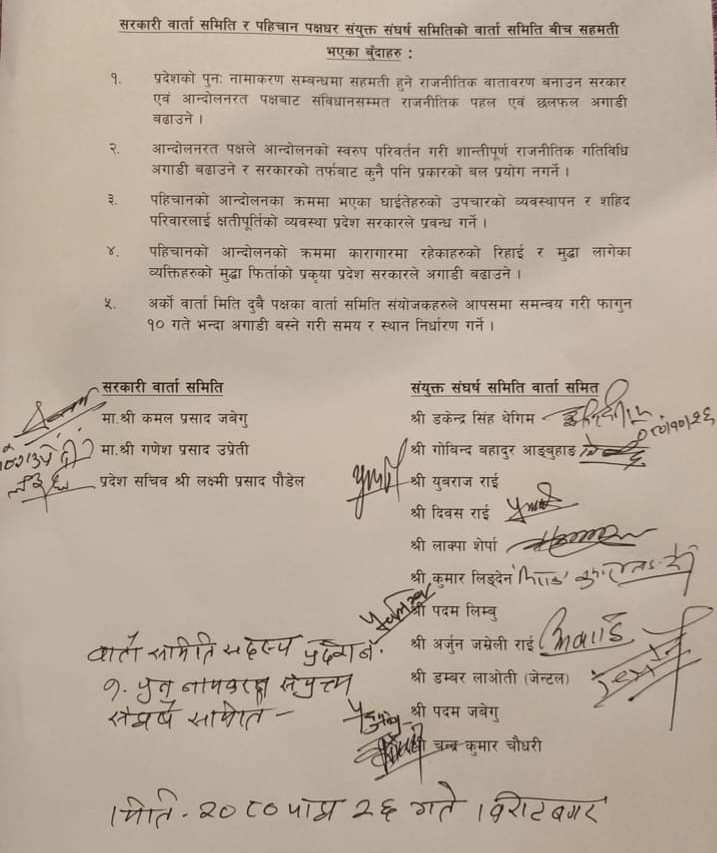 सरकारी वार्ता समिति र पहिचान पक्षधर संयुक्त संघर्ष समितिको वार्ता समिति बीच सहमती
भएका बुँदाहरु :
१. प्रदेशको पुनः नामाकरण सम्बन्धमा सहमती हुने राजनीतिक वातावरण बनाउन सरकार
एवं आन्दोलनरत पक्षबाट संविधानसम्मत राजनीतिक पहल एवं छलफल अगाडी
बढाउने ।
२. आन्दोलनरत पक्षले आन्दोलनको स्वरुप परिवर्तन गरी शान्तीपूर्ण राजनीतिक गतिविधि
अगाडी बढाउने र सरकारको तर्फबाट कुनै पनि प्रकारको बल प्रयोग नगर्ने ।
३. पहिचानको आन्दोलनका क्रममा भएका घाईतेहरुको उपचारको व्यवस्थापन र शहिद
परिवारलाई क्षतीपूर्तिको व्यवस्था प्रदेश सरकारले प्रवन्ध गर्ने ।
४. पहिचानको आन्दोलनको क्रममा कारागारमा रहेकाहरुको रिहाई र मुद्धा लागेका
व्यक्तिहरुको मुद्धा फिर्ताको प्रकृया प्रदेश सरकारले अगाडी बढाउने ।
५. अर्को वार्ता मिति दुबै पक्षका वार्ता समिति संयोजकहरुले आपसमा समन्वय गरी फागुन
१० गते भन्दा अगाडी बस्ने गरी समय र स्थान निर्धारण गर्ने ।
सरकारी वार्ता समिति
मा.श्री कमल प्रसाद जबेगु
मा.श्री गणेश प्रसाद उप्रेती
प्रदेश सचिव श्री लक्ष्मी प्रसाद पौडेल
संयुक्त संघर्ष समिति वार्ता समित
श्री डकेन्द्र सिंह थेगिम
श्री गोविन्द बहादुर आङबुहाङ
श्री युबराज राई
श्री दिवस राई
श्री लाक्पा शेर्पा
श्री कुमार लिङदेन
श्री पदम लिम्बु
श्री अर्जुन जम्नेली राई
श्री डम्बर लाओती (जेन्टल)
श्री पदम जबेगु
श्री चन्द्र कुमार चौधरी
वार्ता समिति सदस्य
१. पुन नामकरण संयुक्त
संघर्ष समिति -
मिति - २०८० माघ २६ गते । विराटनगर